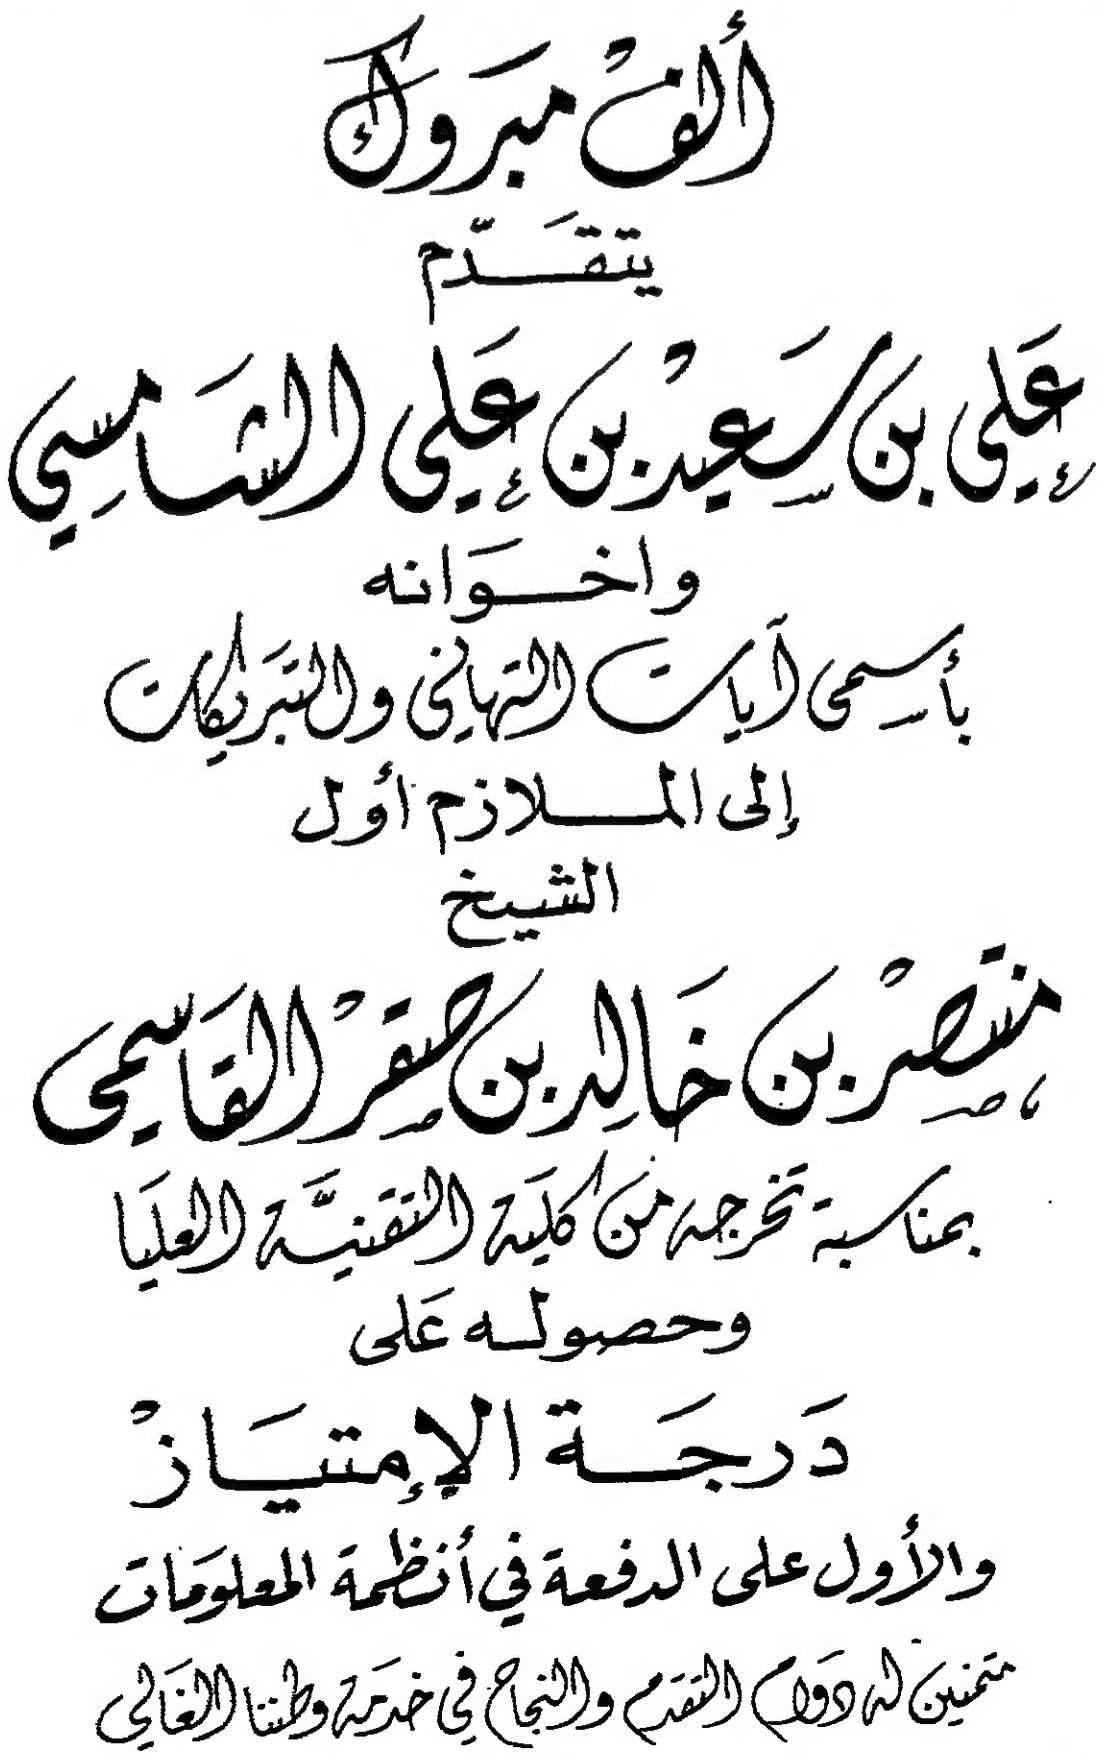 ألف مبروك
يتقدّم
علي بن سعيد بن علي الشامسي
واخوانه
بأسمى آيات التهاني والتبريكات
إلى الملازم أول
الشيخ
منتصر بن خالد بن صقر القاسمي
بمناسبة تخرجه من كلية التقنيَّة العليا
وحصوله على
درجة الإمتياز
والأول على الدفعة في أنظمة المعلومات
متمنين له دوام التقدم والنجاح في خدمة وطننا الغالي